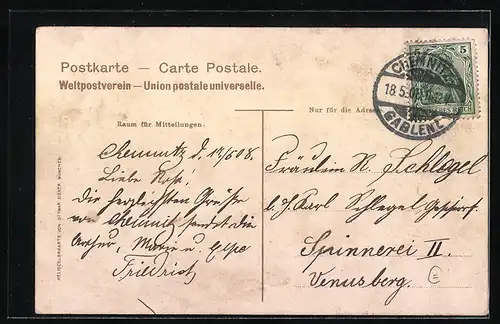 Postkarte — Carte Postale.
Weltpostverein — Union postale universelle.
Raum für Mitteilungen.
Chemnitz d. 18/5 08.
Liebe Rosa!
Die herzlichsten Grüsse
von Chemnitz sendet die
Arthur, Marie u. Else
Friedrich
CHEMNITZ
18.5.08
GABLENZ
5
Nur für die Adresse
Fräulein R. Schlegel
b. H. Karl Schlegel
Spinnerei II.
Venusberg.
C
VON OTTMAR ZIEHER, MÜNCHEN